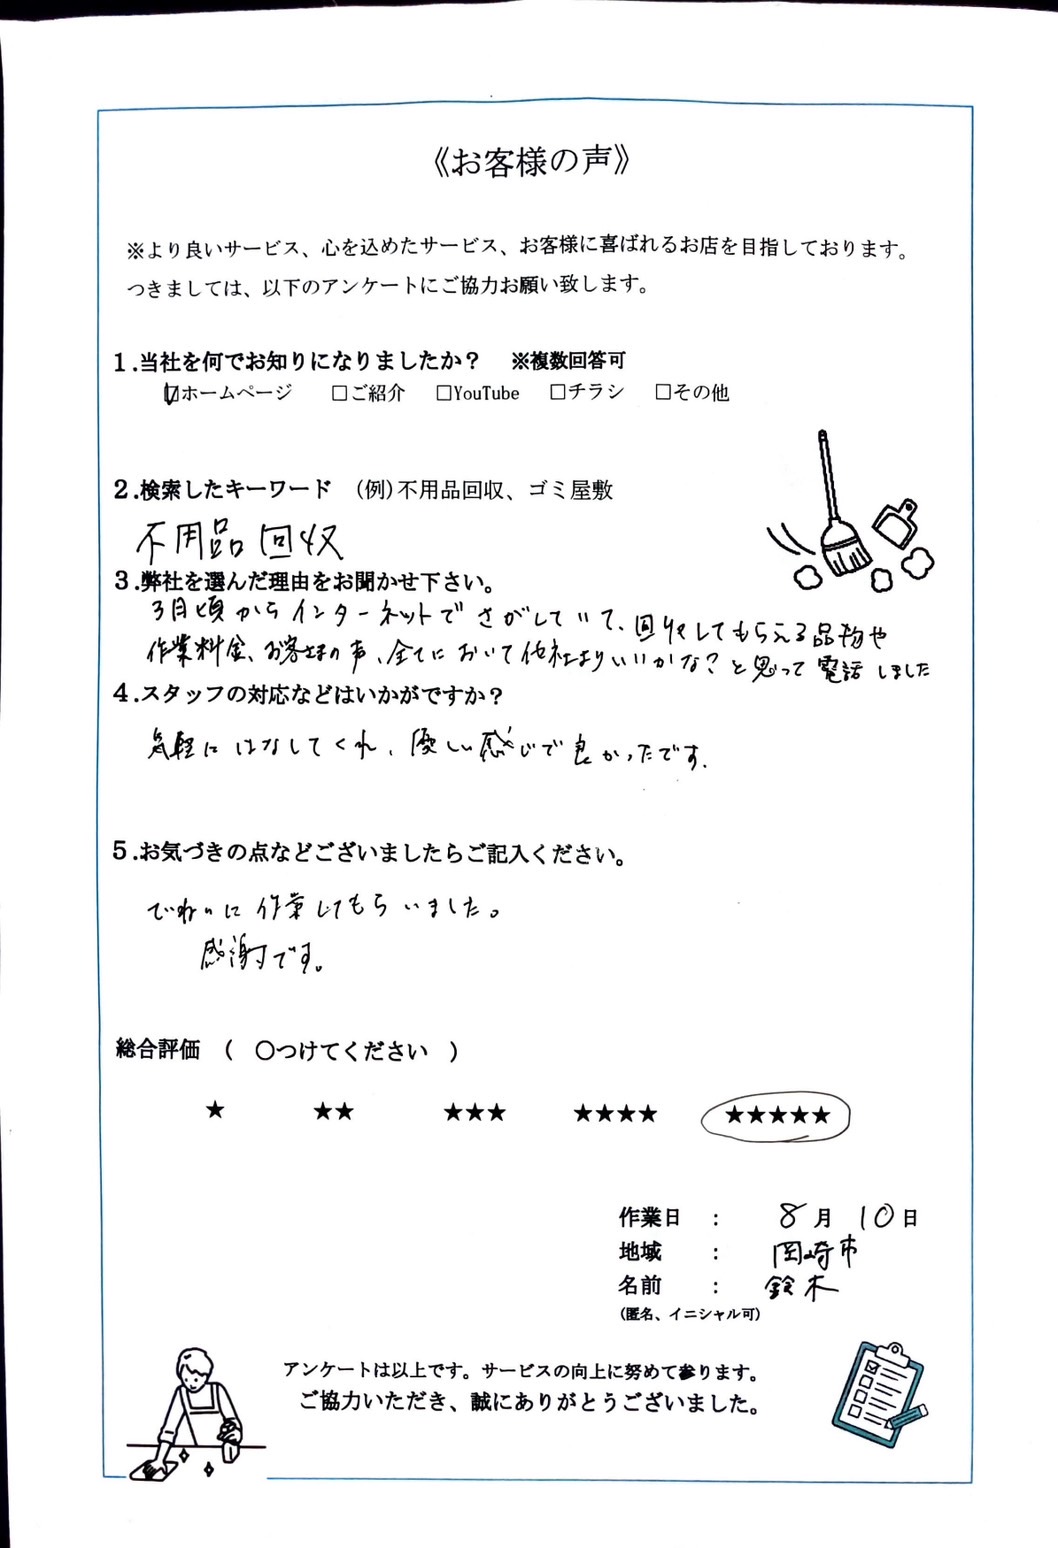 《お客様の声》
※より良いサービス、心を込めたサービス、お客様に喜ばれるお店を目指しております。
つきましては、以下のアンケートにご協力お願い致します。
1.当社を何でお知りになりましたか? ※複数回答可
☑ホームページ □ご紹介 □YouTube □チラシ □その他
2.検索したキーワード (例)不用品回収、ゴミ屋敷
不用品回収
3.弊社を選んだ理由をお聞かせ下さい。
3月頃からインターネットでさがしていて、回収してもらえる品物や
作業料金、お客さまの声、全てにおいて他社よりいいかな?と思って電話しました
4.スタッフの対応などはいかがですか?
気軽にはなしてくれ、優しい感じで良かったです.
5.お気づきの点などございましたらご記入ください。
ていねいに作業してもらいました。
感謝です。
総合評価 ( ○つけてください )
★ ★★ ★★★ ★★★★ ★★★★★
作業日 : 8月10日
地域 : 岡崎市
名前 : 鈴木
(匿名、イニシャル可)
アンケートは以上です。サービスの向上に努めて参ります。
ご協力いただき、誠にありがとうございました。